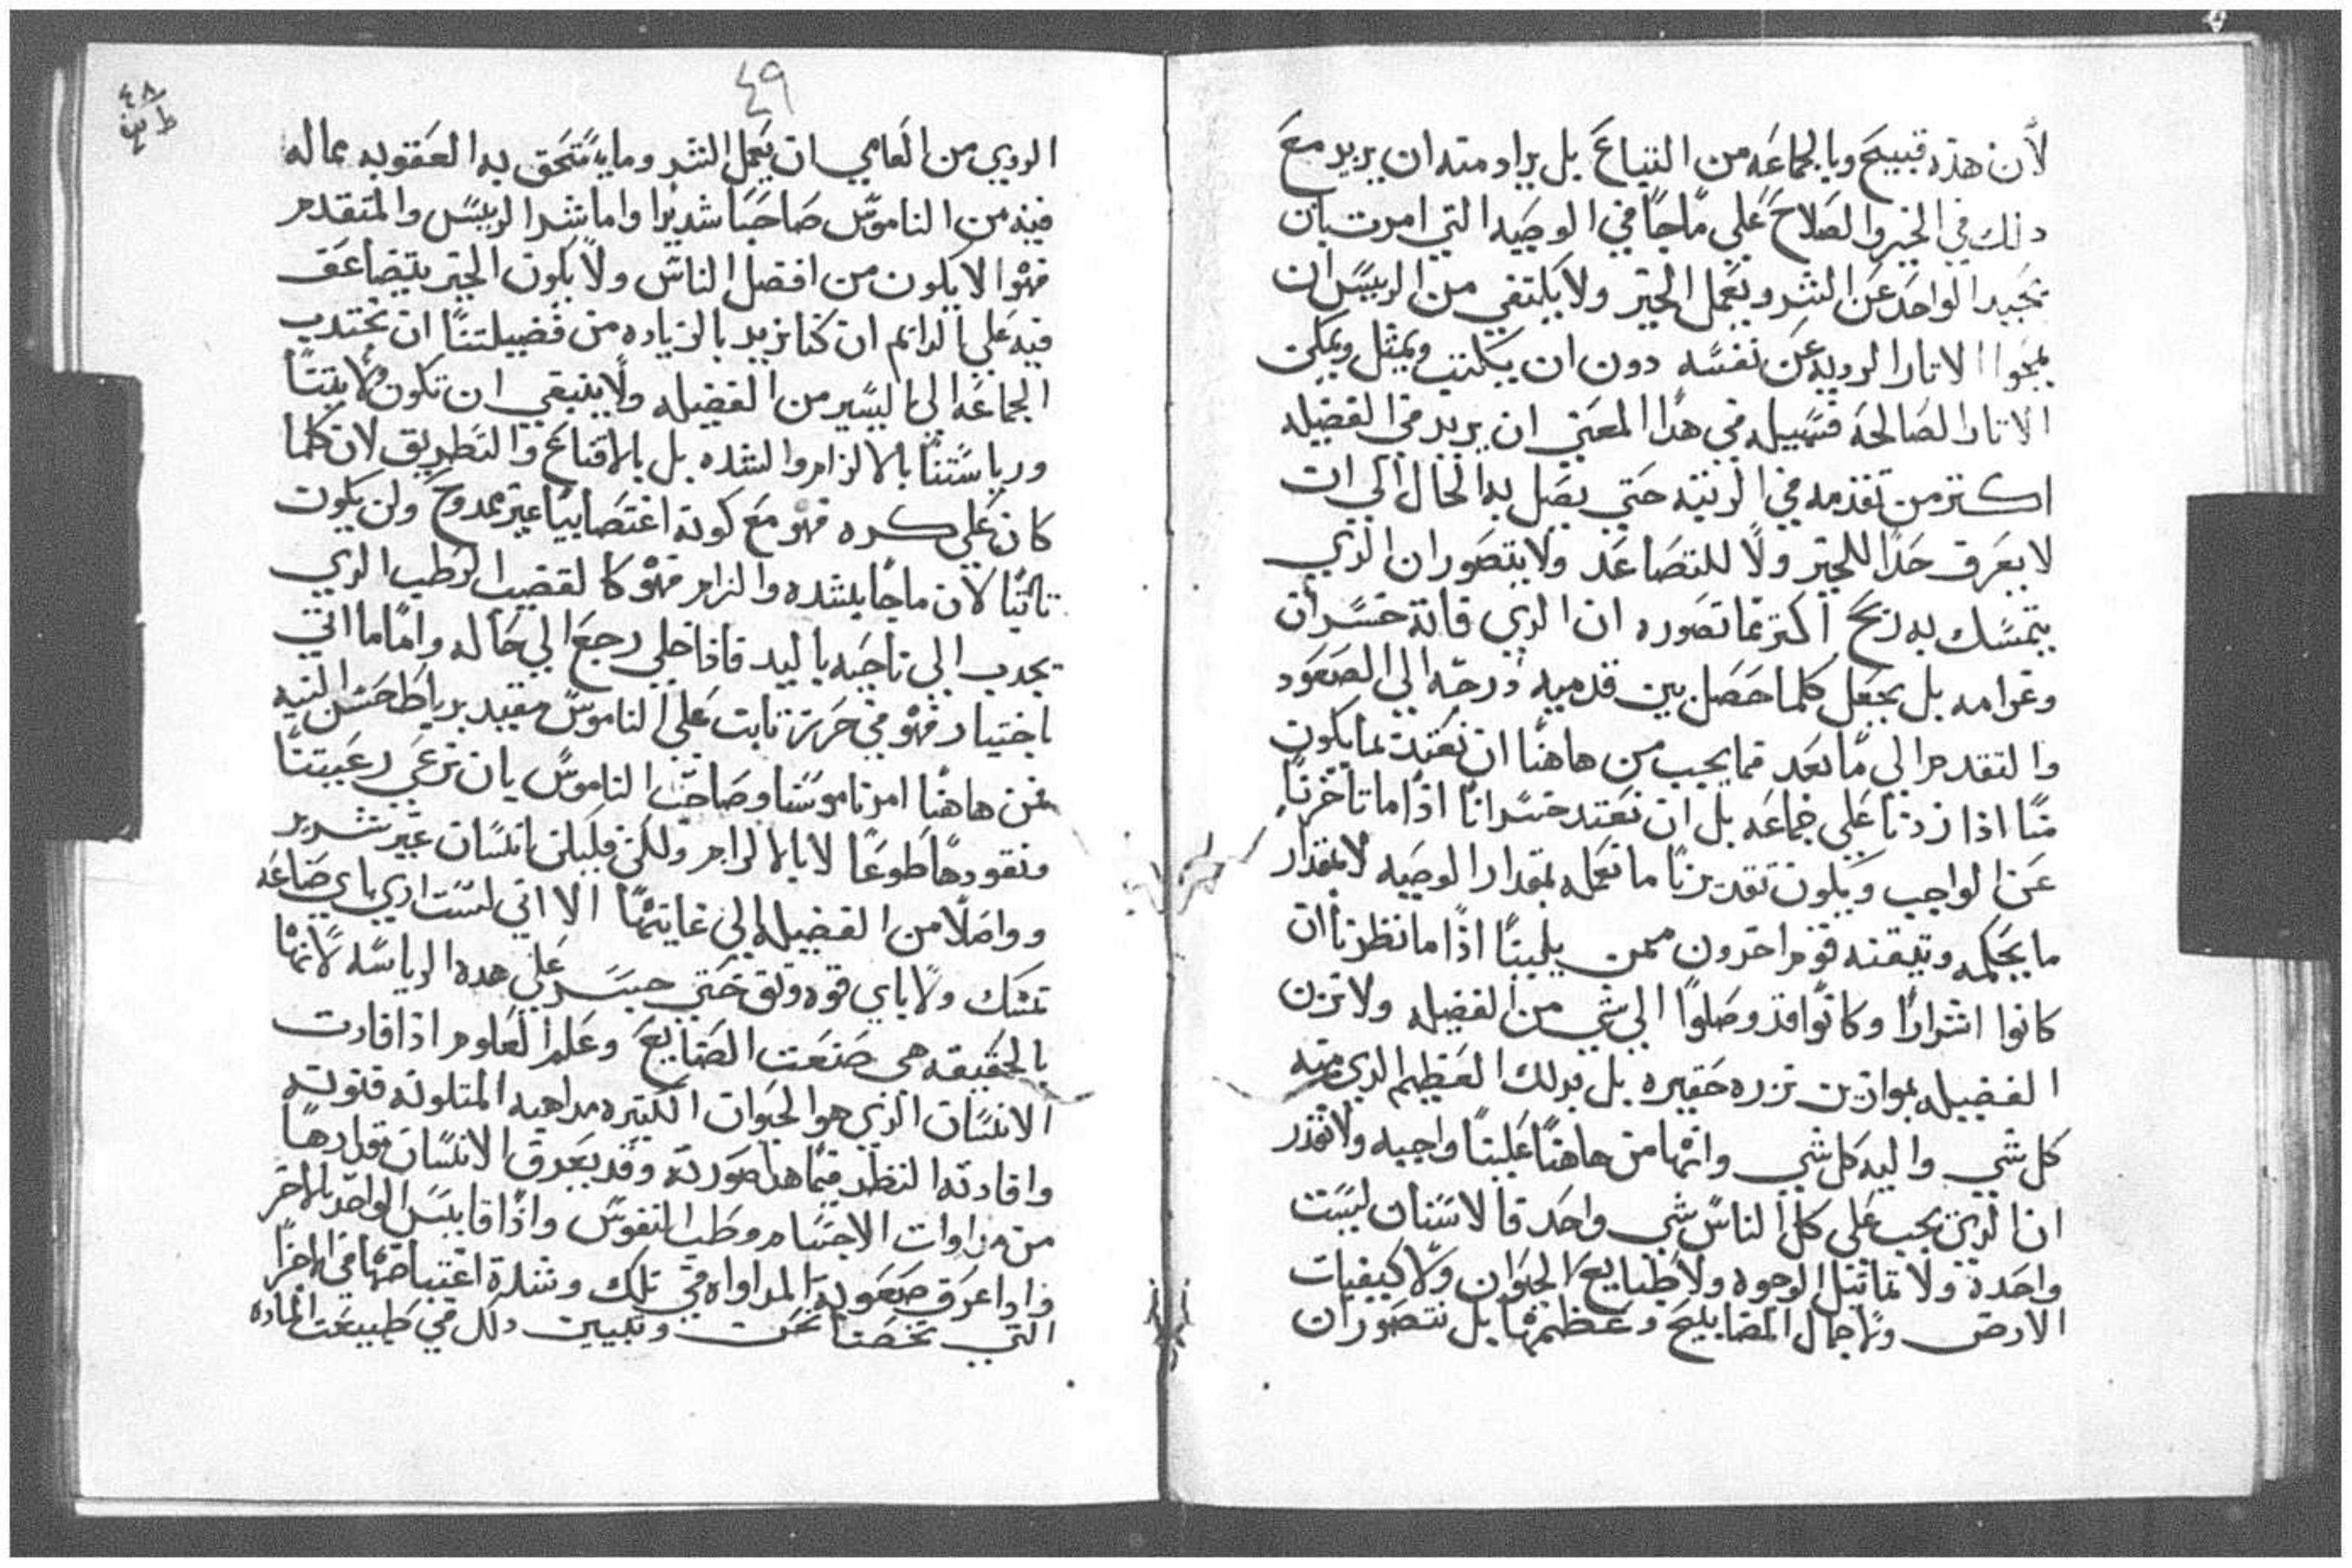 لأن هذه قبيح وبالجماعه من التباع بل يراد منه ان يزيد مع
ذلك في الخير والصلاح علي ما جا في الوصيه التي امرت بان
يحيد الواحد عن الشر ويعمل الخير ولا يكتفي من الرييس ان
يمحوا الاتار الرديه عن نفسه دون ان يكتب ويمثل ويمكن
الاتار الصالحه فسبيله في هدا المعني ان يزيد في الفضيله
اكتر من تقدمه في الرتبه حتي يصل به الحال الي ان
لا يعرف حدا للخير ولا للتصاعد ولا يتصور ان الذي
يتمسك به ربح اكتر مما تصوره ان الذي فاته خسران
وغرامه بل يجعل كلما حصل بين قدميه درجه الي الصعود
والتقدم الي ما بعد فما يجب من هاهنا ان نعتد بما يكون
منا اذا زدنا علي جماعه بل ان نعتد خسرانا اذا ما تاخرنا
عن الواجب ويكون تقديرنا ما نعمله بمقدار الوصيه لا بمقدار
ما يحكمه وتيقنه قوم اخرون ممن يلينا اذا ما نظرنا ان
كانوا اشرارا وكانوا قد وصلوا الي شي من الفضيله ولا نزن
الفضيله بموازين نزره حقيره بل بدلك العظيم الدي منه
كل شي واليه كل شي وانها من هاهنا علينا واجبه ولا نقدر
ان الذي يجب علي كل الناس شي واحد فالاسنان ليست
واحدة ولا تماتيل الوجوه ولا طبايع الحيوان ولا كيفيات
الارض ولا جمال المصابيح وعظمها بل نتصور ان
٤٩
٤٨
الردي من العامي ان يعمل الشر وما يستحق به العقوبه مما له
فيه من الناموس صاحبا شديدا واما شر الرييس والمتقدم
فهو الا يكون من افضل الناس ولا يكون الخير يتضاعف
فيه علي الدايم ان كنا نريد بالزياده من فضيلتنا ان نجتدب
الجماعه الي اليسير من الفضيله ولا ينبغي ان تكون ولايتنا
ورياستنا بالالزام والشده بل بالاقناع والتطريق لان كلما
كان علي كره فهو مع كونه اغتصابيا غير ممدوح ولن يكون
تابتا لان ما جا بشده والزام فهو كالقضيب الرطب الدي
يجدب الي ناحيه باليد فاذا خلي رجع الي حاله واما ما اتي
باختيار فهو في حرز تابت علي الناموس مقيد برباط حسن النيه
فمن هاهنا امر ناموسنا وصاحب الناموس بان نرعي رعيتنا
ونقودها طوعا لا بالالزام ولكن فليكن انسان غير شرير
وواصلا من الفضيله الي غايتها الا اني لست ادري باي صناعه
تمسك ولا باي قوه وتق حتي جسر علي هده الرياسه لانها
بالحقيقه هي صنعت الصنايع وعلم العلوم اذا فادت
الانسان الذي هو الحيوان الكتيره مداهبه المتلونه فنونه
وافادته النظر فيما هدا صورته وقد يعرف الانسان قدرها
من مداوات الاجسام وطب النفوس واذا قايس الواحد بالاخر
واذا عرف صعوبة المداواه في تلك وشدة اعتياصها في الاخرا
التي تخصنا نحن وتبيين دلك في طبيعت الماده